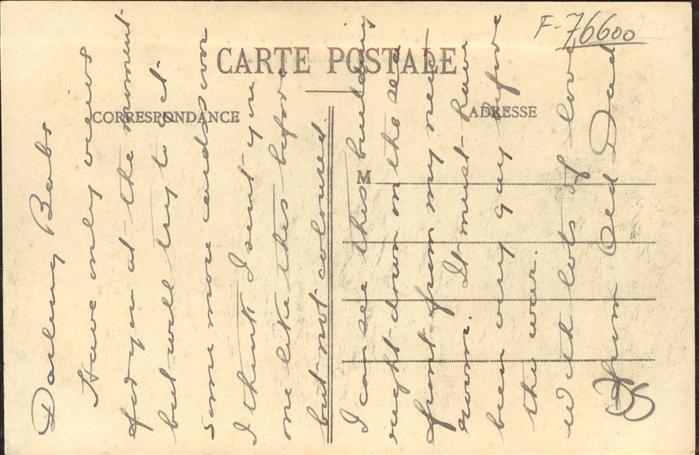 CARTE POSTALE
CORRESPONDANCE
ADRESSE
M
F-76600
Darling Babs
Have only views
for you at the moment
but will try to get
some more cards soon
I think I sent you
one like this before
but not coloured.
I can see this building
right down on the sea
front from my new
room. It must have
been very gay before
the war.
With lots of love
from Old Dad